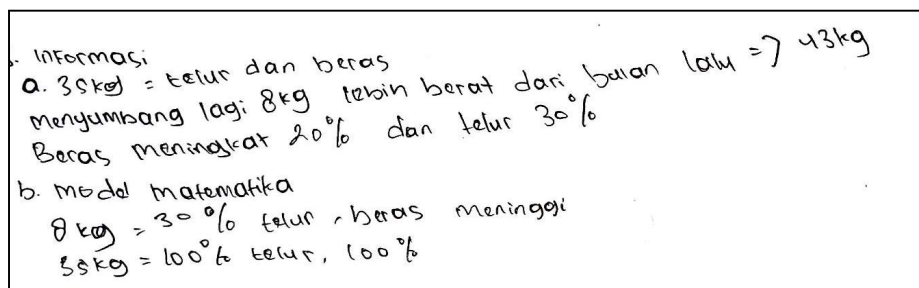 1. Informasi
a. 35kg = telur dan beras
menyumbang lagi 8kg lebih berat dari bulan lalu => 43kg
Beras meningkat 20% dan telur 30%
b. model matematika
8 kg = 30% telur, beras meninggi
35kg = 100% telur, 100%